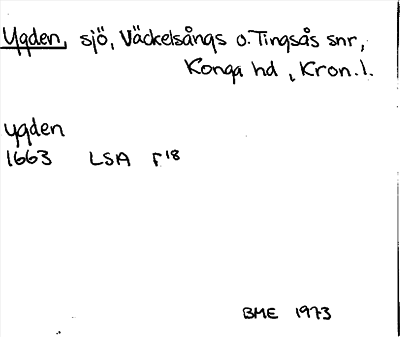 Ygden, sjö, Väckelsångs o. Tingsås snr,
Konga hd, Kron. l.
ygden
1663 LSA Γ18
BME 1973